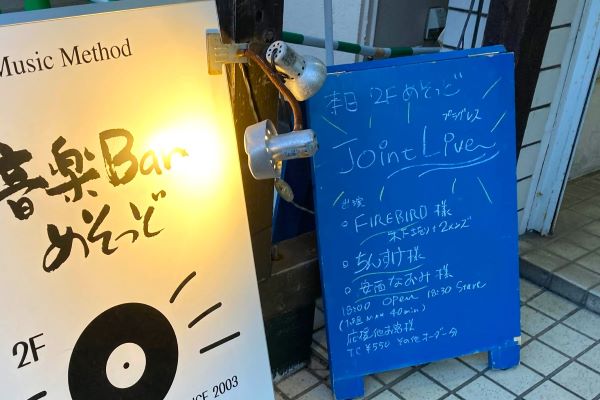 Music Method
音楽Bar
めそっど
2F
SINCE 2003
本日 2Fめそっど
Joint Live
出演
FIREBIRD 様
ちんすけ様
安西なおみ 様
18:00 open 18:30 Start
(1組 max 40min)
応援他お客様
TC ¥550 その他オーダー分